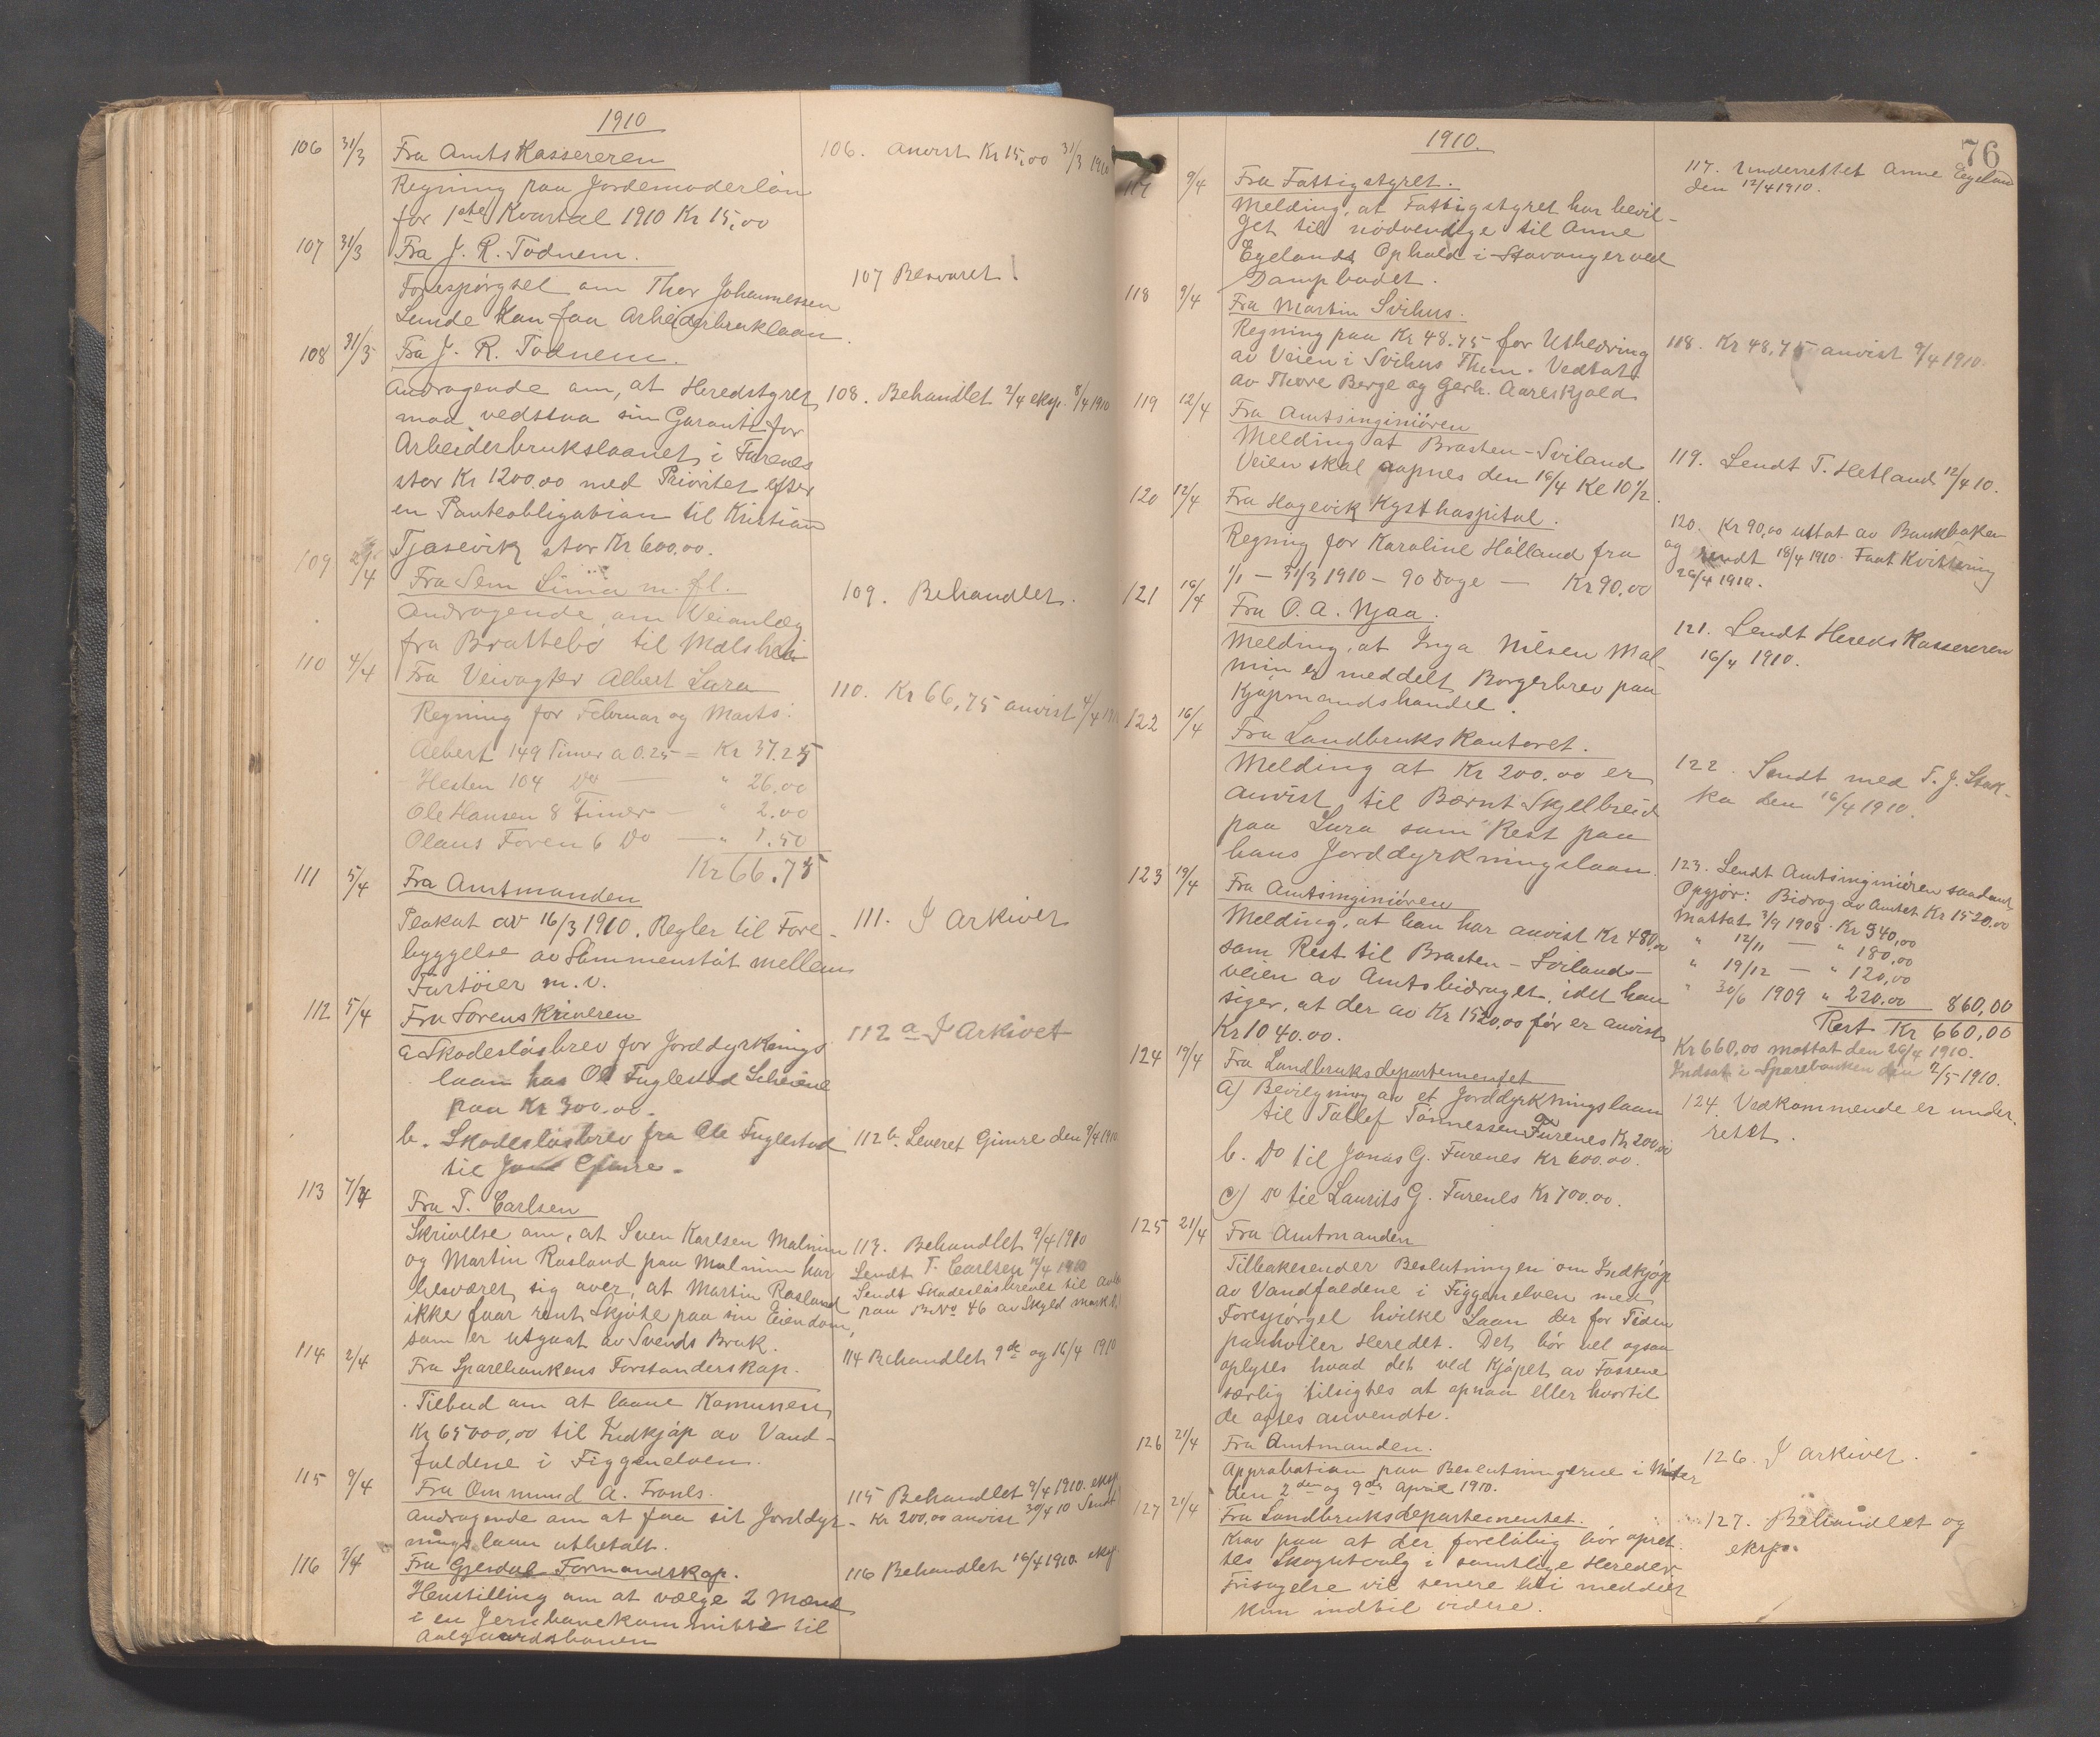 1910
106 31/3 Fra Amtskassereren
Regning paa Jordemoderløn
for 1ste Kvartal 1910 Kr 15,00
106. Anvist Kr 15,00 31/3 1910
107 31/3 Fra J. R. Todnem.
Forespørgsel om Thor Johannessen
Lunde kan faa Arbeiderbruklaan.
107 Besvaret.
108 31/3 Fra J. R. Todnem.
Andragende om, at Heredstyret
maa vedstaa sin Garanti for
Arbeiderbrukslaanet i Furenes
stor Kr 1200.00 med Prioritet efter
en Panteobligation til Kristian
Tjosevik stor Kr 600.00.
108. Behandlet 2/4 eksp. 8/4 1910
109 2/4 Fra Sem Lima m. fl.
Andragende om Veianlæg
fra Brattebø til Mølshei
109. Behandlet.
110 4/4 Fra Veivogter Albert Lura
Regning for Februar og Marts:
Albert 149 Timer a 0.25 = Kr 37.25
Hesten 104 Do — " 26.00
Ole Hansen 8 Timer — " 2.00
Olaus Foren 6 Do — " 1.50
Kr 66.75
110. Kr 66,75 anvist 4/4 1910
111 5/4 Fra Amtmanden
Plakat av 16/3 1910. Regler til Fore-
byggelse av Sammenstøt mellem
Fartøier m. v.
111. I Arkivet
112 5/4 Fra Sorenskriveren
a. Skadesløsbrev for Jorddyrknings
laan hos Ole Fuglestad Scheiene
paa Kr 300.00.
112 a I Arkivet
b. Skadesløsbrev fra Ole Fuglestad
til Gimre.
112 b. Leveret Gimre den 9/4 1910
113 7/4 Fra T. Carlsen
Skrivelse om, at Sven Karlsen Malmin
og Martin Rosland paa Malmin har
besværet sig over, at Martin Rosland
ikke faar rent Skjøte paa sin Eiendom,
som er utgaat av Svends Bruk.
113. Behandlet 9/4 1910
Sendt T. Carlsen 11/4 1910
Sendt Skadesløsbrevet til
paa BrNo 46 av Skyld mark
114 2/4 Fra Sparebankens Forstanderskap.
Tilbud om at laane Komunen
Kr 65000,00 til Indkjøp av Vand-
faldene i Figgenelven.
114 Behandlet 9de og 16/4 1910
115 9/4 Fra Ommund A. Frones.
Andragende om at faa sit Jorddyr-
nings laan utbetalt.
115 Behandlet 9/4 1910. eksp.
Kr 200,00 anvist 30/4 10 Sendt
116 9/4 Fra Gjesdal Formandskap.
Henstilling om at vælge 2 Mænd
i en Jernbanekommitté til
Aalgaardsbanen
116 Behandlet 16/4 1910. eksp.
1910.
76
117 9/4 Fra Fattigstyret.
Melding, at Fattigstyret har bevil-
get til nødvendige til Anne
Egelands Ophold i Stavanger ved
Dampbadet.
117. Underrettet Anne Egeland
den 12/4 1910.
118 9/4 Fra Martin Svihus.
Regning paa Kr 48.75 for Utbedring
av Veien i Svihus Thun. Vedtat
av Thore Berge og Gerh. Aareskjold
118. Kr 48,75 anvist 9/4 1910.
119 12/4 Fra Amtsinginiøren
Melding at Brasten-Sviland
Veien skal aapnes den 16/4 Kl 10 1/2.
119. Sendt T. Hetland 12/4 10.
120 12/4 Fra Hagevik Kysthospital.
Regning for Karoline Hølland fra
1/1 — 31/3 1910 — 90 Dage — Kr 90.00
120. Kr 90,00 uttat av Bankboken
og sendt 18/4 1910. Faat Kvittering
26/4 1910.
121 16/4 Fra O. A. Njaa.
Melding, at Inga Nilsen Mal-
min er meddelt Borgerbrev paa
Kjøpmandshandel.
121. Sendt Heredskassereren
16/4 1910.
122 16/4 Fra Landbrukskontoret.
Melding at Kr 200.00 er
anvist til Bærnt Skjelbreid
paa Lura som Rest paa
hans Jorddyrkningslaan.
122. Sendt med T. J. Stok-
ka den 16/4 1910.
123 19/4 Fra Amtsinginiøren
Melding, at han har anvist Kr 480,00
som Rest til Brasten - Sorlands-
veien av Amtsbidraget, idet han
siger, at der av Kr 1520,00 før er anvist
Kr 1040.00.
123. Sendt Amtsinginiøren saadant
Opgjør: Bidrag av Amtet Kr 1520.00
Mottat 3/9 1908. Kr 340,00
" 12/11 — " 180,00
" 19/12 — " 120,00
" 30/6 1909 " 220.00 860,00
Rest Kr 660,00
Kr 660,00 mottat den 26/4 1910.
Indsat i Sparebanken den 2/5 1910.
124 19/4 Fra Landbruksdepartementet
a) Bevilgning av et Jorddyrkningslaan
til Tollef Tønnessen Furenes Kr 200.00
b. Do til Jonas G. Furenes Kr 600.00.
c) Do til Laurits G. Furenes Kr 700.00.
124. Vedkommende er under-
rettet.
125 21/4 Fra Amtmanden
Tilbakesender Beslutningen om Indkjøp
av Vandfaldene i Figgenelven med
Forespørgel hvilke Laan der for Tiden
paahviler Heredet. Det bør vel ogsaa
oplyses hvad det ved Kjøpet av Fossene
særlig tilsigtes at opnaa eller hvortil
de agtes anvendte.
126 21/4 Fra Amtmanden.
Approbation paa Beslutningerne i Møter
den 2den og 9de April 1910.
126. I Arkivet.
127 21/4 Fra Landbruksdepartementet.
Krav paa at der foreløbig bør opret-
tes Skogutvalg i samtlige Hereder.
Frisagelse vil senere bli meddelt
kun indtil videre.
127. Behandlet og
eksp.